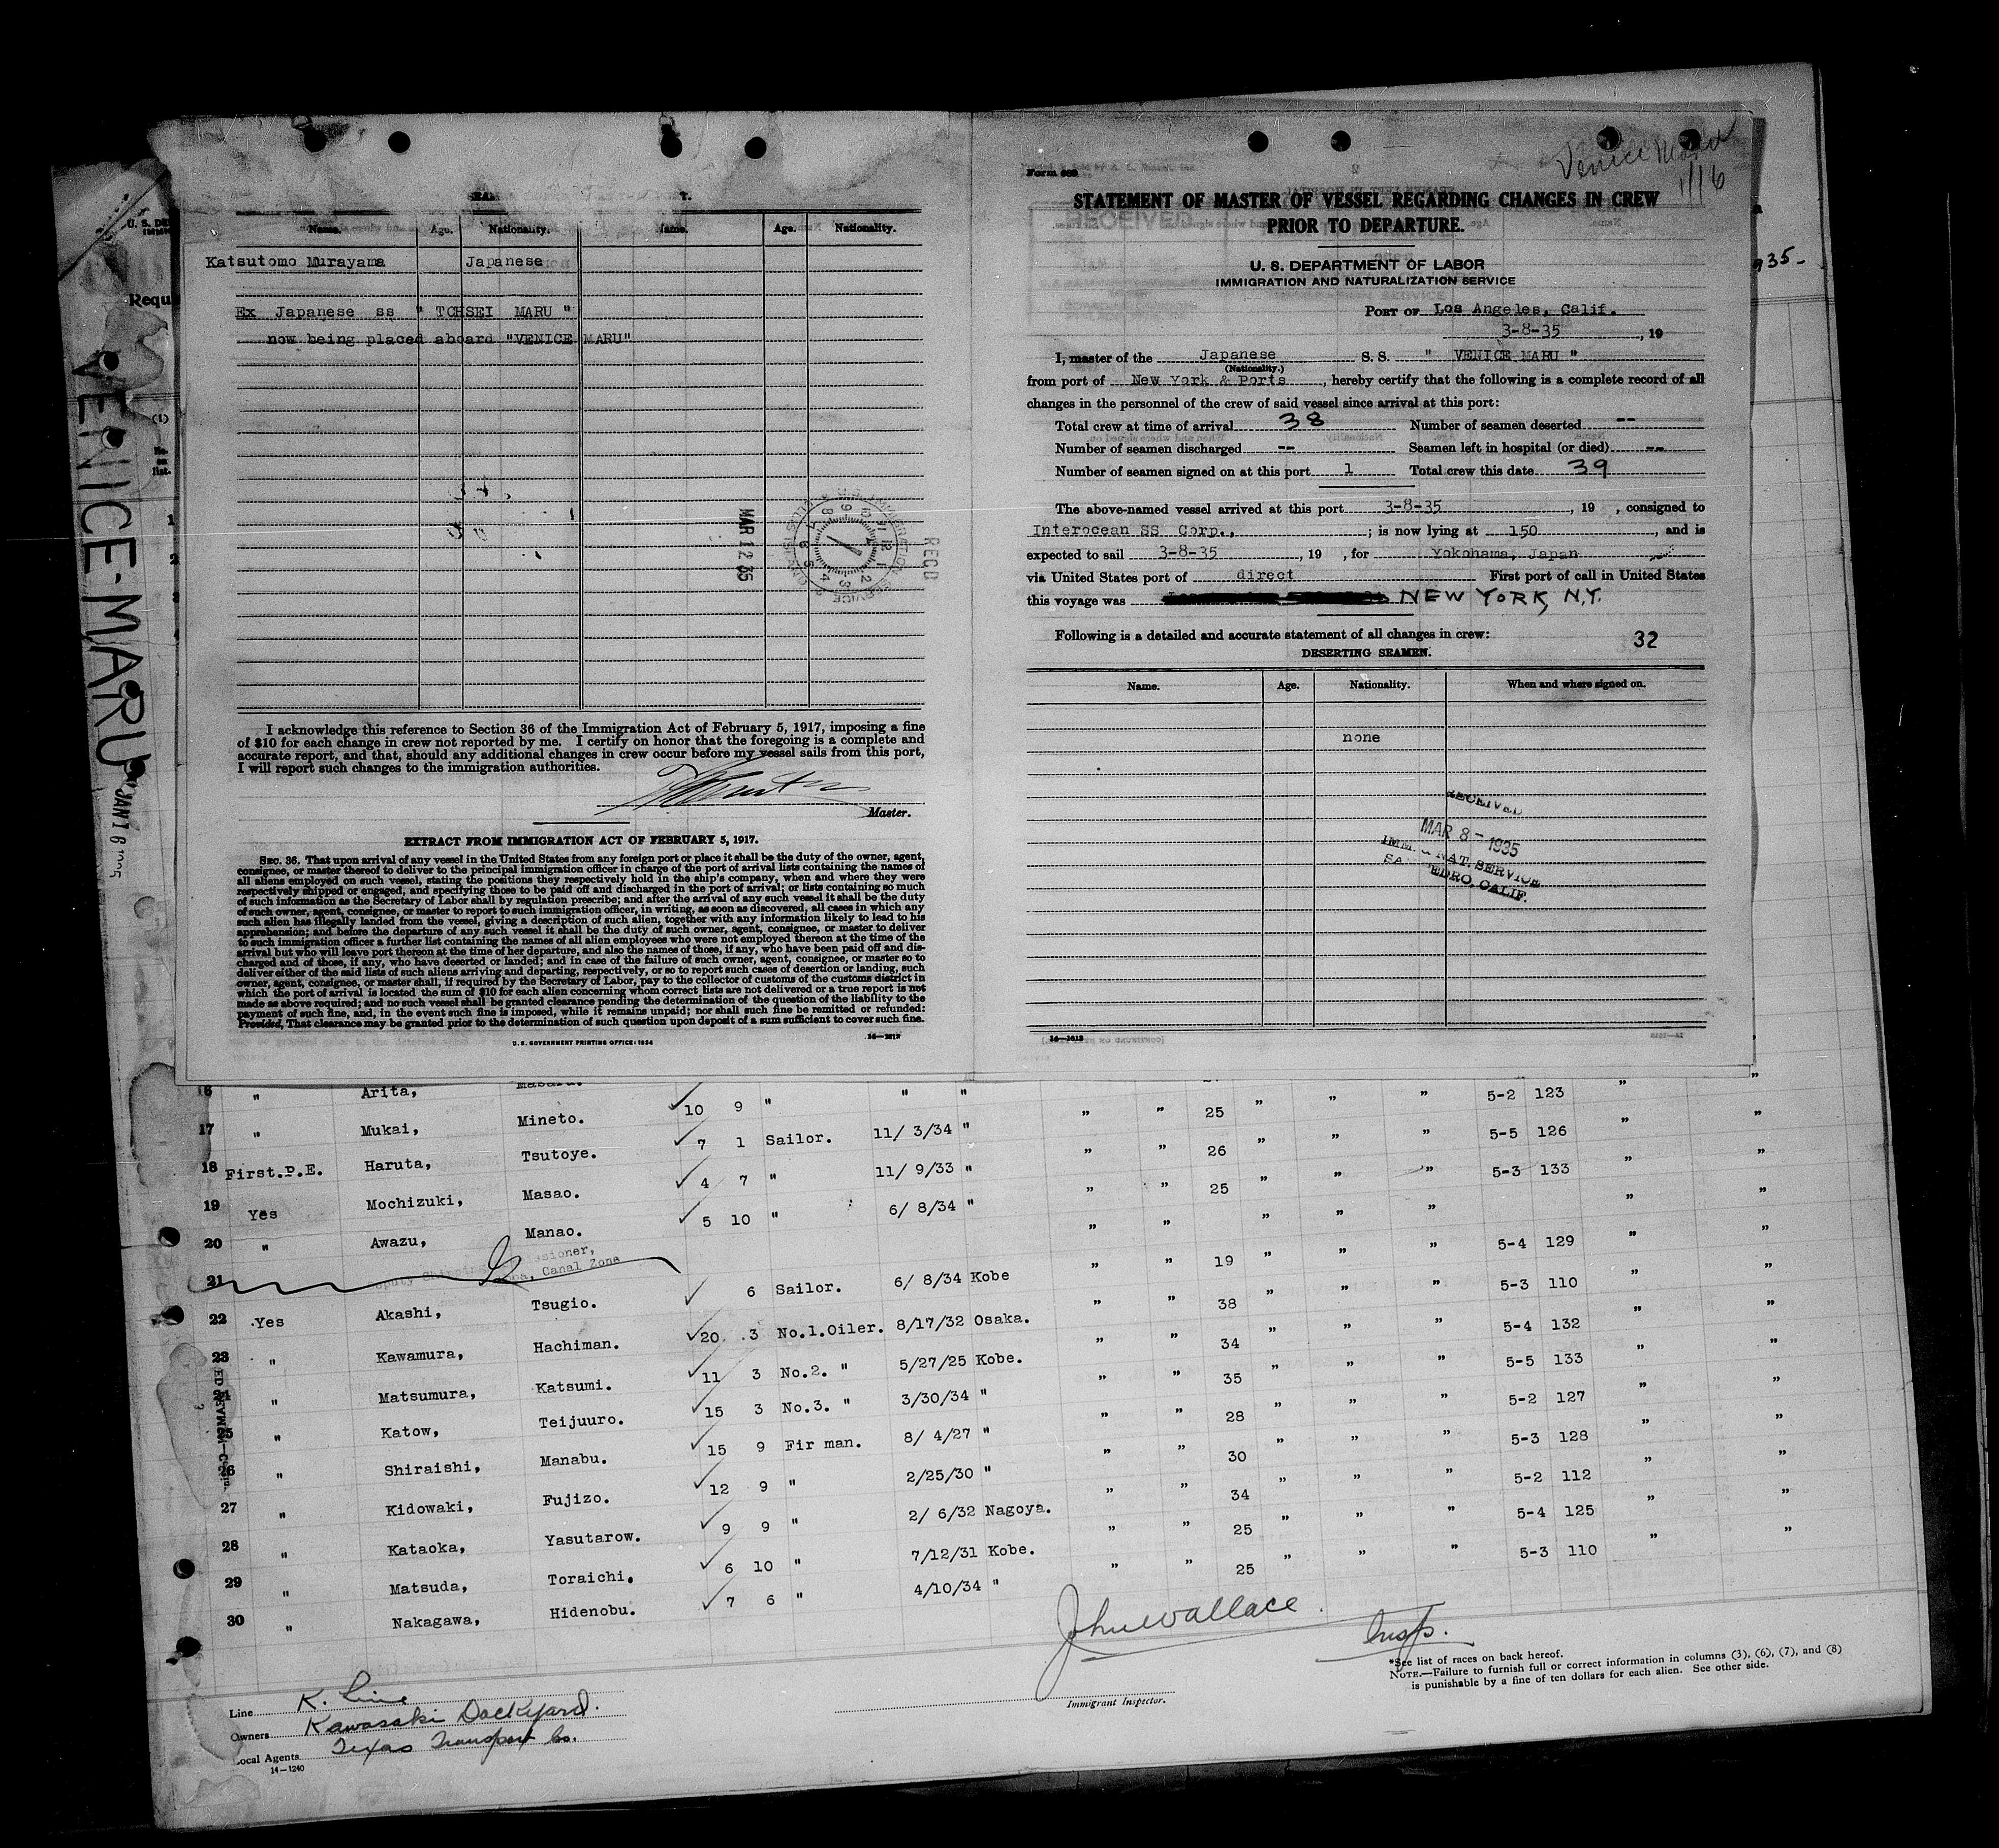 VENICE-MARU
JAN 16 1935
U. S. DE
Requ
(1)
No.
on
list.
Name.
Age.
Nationality.
Name.
Age.
Nationality.
Katsutomo Murayama Japanese
Ex Japanese ss " TOHSEI MARU "
now being placed aboard "VENICE MARU"
MAR 12 35
REC'D
I acknowledge this reference to Section 36 of the Immigration Act of February 5, 1917, imposing a fine
of $10 for each change in crew not reported by me. I certify on honor that the foregoing is a complete and
accurate report, and that, should any additional changes in crew occur before my vessel sails from this port,
I will report such changes to the immigration authorities.
Master.
EXTRACT FROM IMMIGRATION ACT OF FEBRUARY 5, 1917.
SEC. 36. That upon arrival of any vessel in the United States from any foreign port or place it shall be the duty of the owner, agent,
consignee, or master thereof to deliver to the principal immigration officer in charge of the port of arrival lists containing the names of
all aliens employed on such vessel, stating the positions they respectively hold in the ship's company, when and where they were
respectively shipped or engaged, and specifying those to be paid off and discharged in the port of arrival; or lists containing so much
of such information as the Secretary of Labor shall by regulation prescribe; and after the arrival of any such vessel it shall be the duty
of such owner, agent, consignee, or master to report to such immigration officer, in writing, as soon as discovered, all cases in which any
such alien has illegally landed from the vessel, giving a description of such alien, together with any information likely to lead to his
apprehension; and before the departure of any such vessel it shall be the duty of such owner, agent, consignee, or master to deliver
to such immigration officer a further list containing the names of all alien employees who were not employed thereon at the time of the
arrival but who will leave port thereon at the time of her departure, and also the names of those, if any, who have been paid off and dis-
charged and of those, if any, who have deserted or landed; and in case of the failure of such owner, agent, consignee, or master so to
deliver either of the said lists of such aliens arriving and departing, respectively, or so to report such cases of desertion or landing, such
owner, agent, consignee, or master shall, if required by the Secretary of Labor, pay to the collector of customs of the customs district in
which the port of arrival is located the sum of $10 for each alien concerning whom correct lists are not delivered or a true report is not
made as above required; and no such vessel shall be granted clearance pending the determination of the question of the liability to the
payment of such fine, and, in the event such fine is imposed, while it remains unpaid; nor shall such fine be remitted or refunded:
Provided, That clearance may be granted prior to the determination of such question upon deposit of a sum sufficient to cover such fine.
U. S. GOVERNMENT PRINTING OFFICE: 1934
Venice Maru
1/16
STATEMENT OF MASTER OF VESSEL REGARDING CHANGES IN CREW
PRIOR TO DEPARTURE.
U. S. DEPARTMENT OF LABOR
IMMIGRATION AND NATURALIZATION SERVICE
PORT OF Los Angeles, Calif.
3-8-35 , 19
I, master of the Japanese S. S. " VENICE MARU "
(Nationality.)
from port of New York & Ports , hereby certify that the following is a complete record of all
changes in the personnel of the crew of said vessel since arrival at this port:
Total crew at time of arrival 38 Number of seamen deserted --
Number of seamen discharged -- Seamen left in hospital (or died) --
Number of seamen signed on at this port 1 Total crew this date 39
The above-named vessel arrived at this port 3-8-35 , 19 , consigned to
Interocean SS Corp., ; is now lying at 150 , and is
expected to sail 3-8-35 , 19 , for Yokohama, Japan
via United States port of direct First port of call in United States
this voyage was NEW YORK, N.Y.
Following is a detailed and accurate statement of all changes in crew: 32
DESERTING SEAMEN.
Name. Age. Nationality. When and where signed on.
none
RECEIVED
MAR 8 - 1935
IMM. & NAT. SERVICE
SAN PEDRO, CALIF.
14—1613
935-
16 " Arita, " " " 5-2 123 " "
17 " Mukai, Mineto. 10 9 " " " 25 " " " 5-5 126 " "
18 First.P.E. Haruta, Tsutoye. 7 1 Sailor. 11/ 3/34 " " " 26 " " " 5-3 133 " "
19 Yes Mochizuki, Masao. 4 7 " 11/ 9/33 " " " 25 " " " " "
20 " Awazu, Manao. 5 10 " 6/ 8/34 " " " " " " 5-4 129 " "
21
Canal Zone
22 Yes Akashi, Tsugio. 6 Sailor. 6/ 8/34 Kobe " " 19 " " " 5-3 110 " "
23 " Kawamura, Hachiman. 20 3 No.1.Oiler. 8/17/32 Osaka. " " 38 " " " 5-4 132 " "
24 " Matsumura, Katsumi. 11 3 No.2. " 5/27/25 Kobe. " " 34 " " " 5-5 133 " "
25 " Katow, Teijuuro. 15 3 No.3. " 3/30/34 " " " 35 " " " 5-2 127 " "
26 " Shiraishi, Manabu. 15 9 Fir man. 8/ 4/27 " " " 28 " " " 5-3 128 " "
27 " Kidowaki, Fujizo. 12 9 " 2/25/30 " " " 30 " " " 5-2 112 " "
28 " Kataoka, Yasutarow. 9 9 " 2/ 6/32 Nagoya. " " 34 " " " 5-4 125 " "
29 " Matsuda, Toraichi. 6 10 " 7/12/31 Kobe. " " 25 " " " 5-3 110 " "
30 " Nakagawa, Hidenobu. 7 6 " 4/10/34 " " " 25
John Wallace Insp.
Immigrant Inspector.
*See list of races on back hereof.
NOTE.—Failure to furnish full or correct information in columns (3), (6), (7), and (8)
is punishable by a fine of ten dollars for each alien. See other side.
Line K. Line
Owners Kawasaki Dockyard.
Local Agents Texas Transport Co.
14—1240